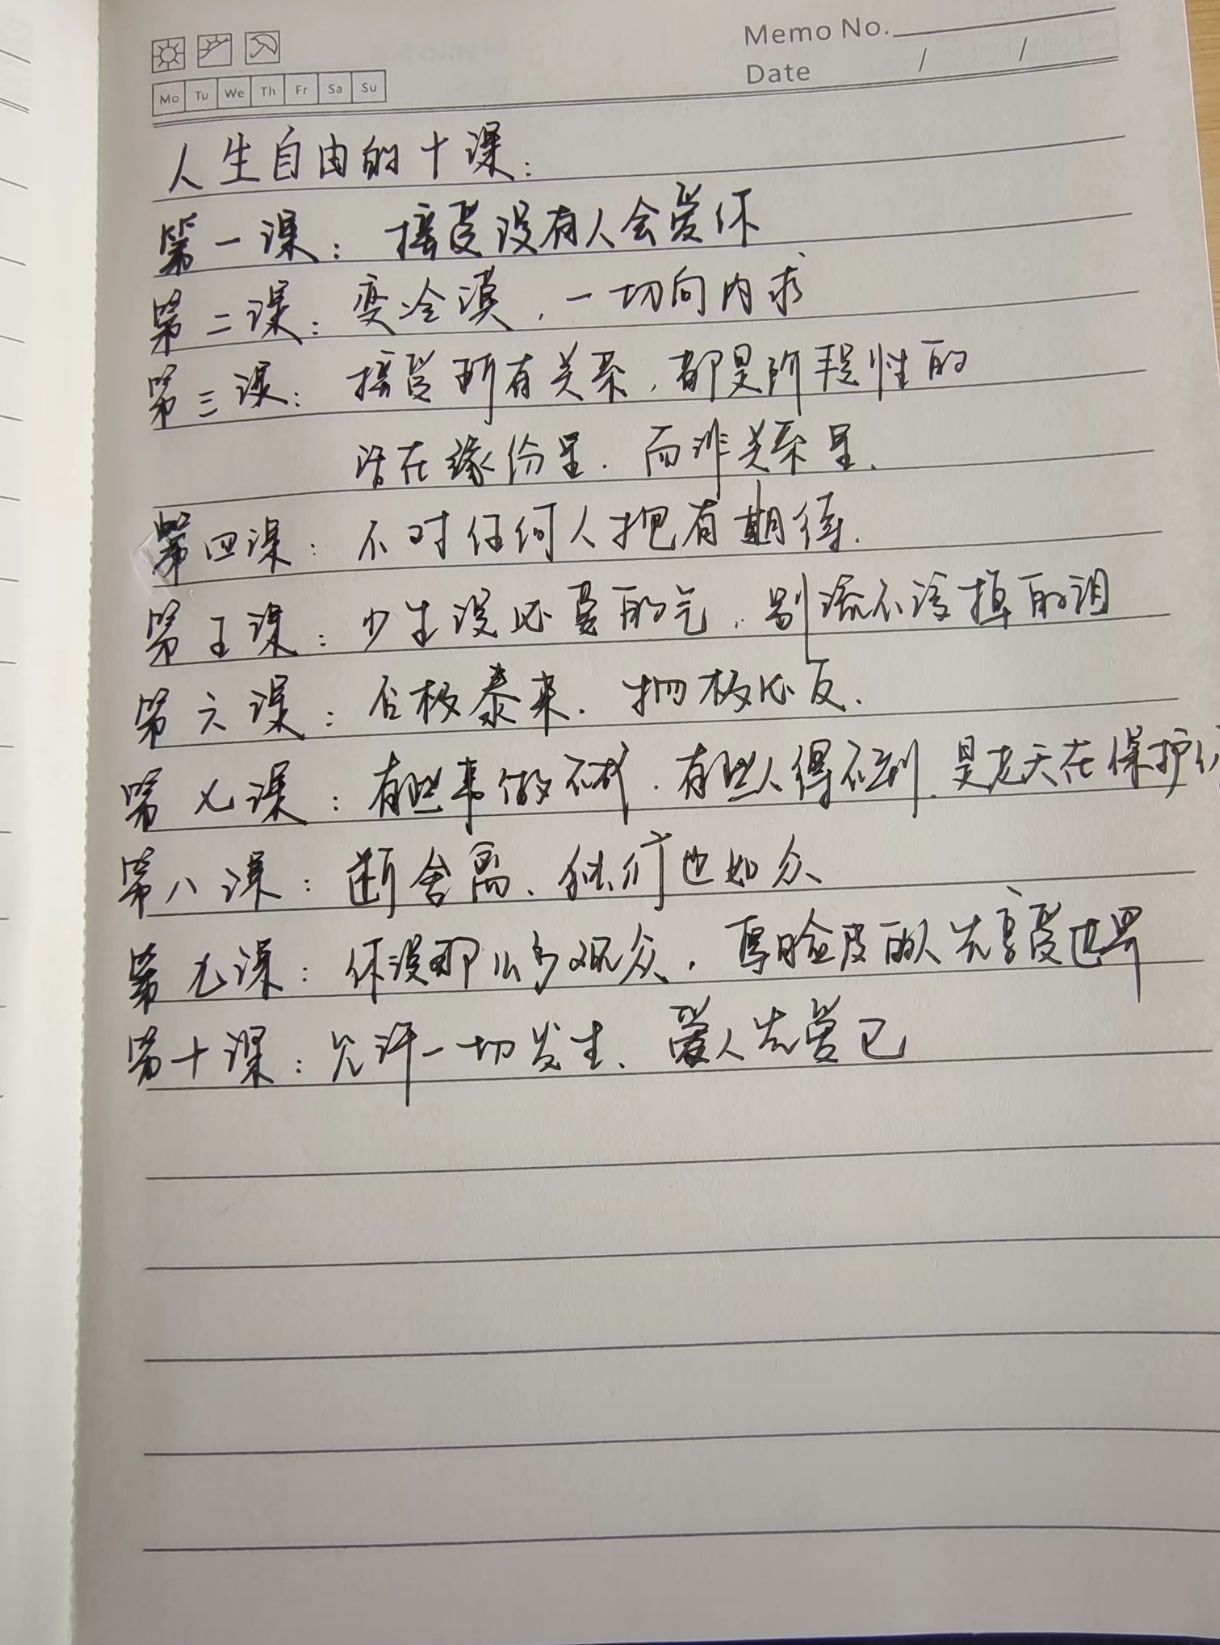 Memo No.
Mo Tu We Th Fr Sa Su
Date / /
人生自由的十课：
第一课：接受没有人会爱你
第二课：变冷漠，一切向内求
第三课：接受所有关系，都是阶段性的
活在缘份里，而非关系里，
第四课：不对任何人抱有期待，
第五课：少生没必要的气，别流不该掉的泪
第六课：否极泰来，物极必反，
第七课：有些事做不成，有些人得不到，是老天在保护你
第八课：断舍离、
第九课：你没那么多观众，厚脸皮的人先享受世界
第十课：允许一切发生、爱人先爱己